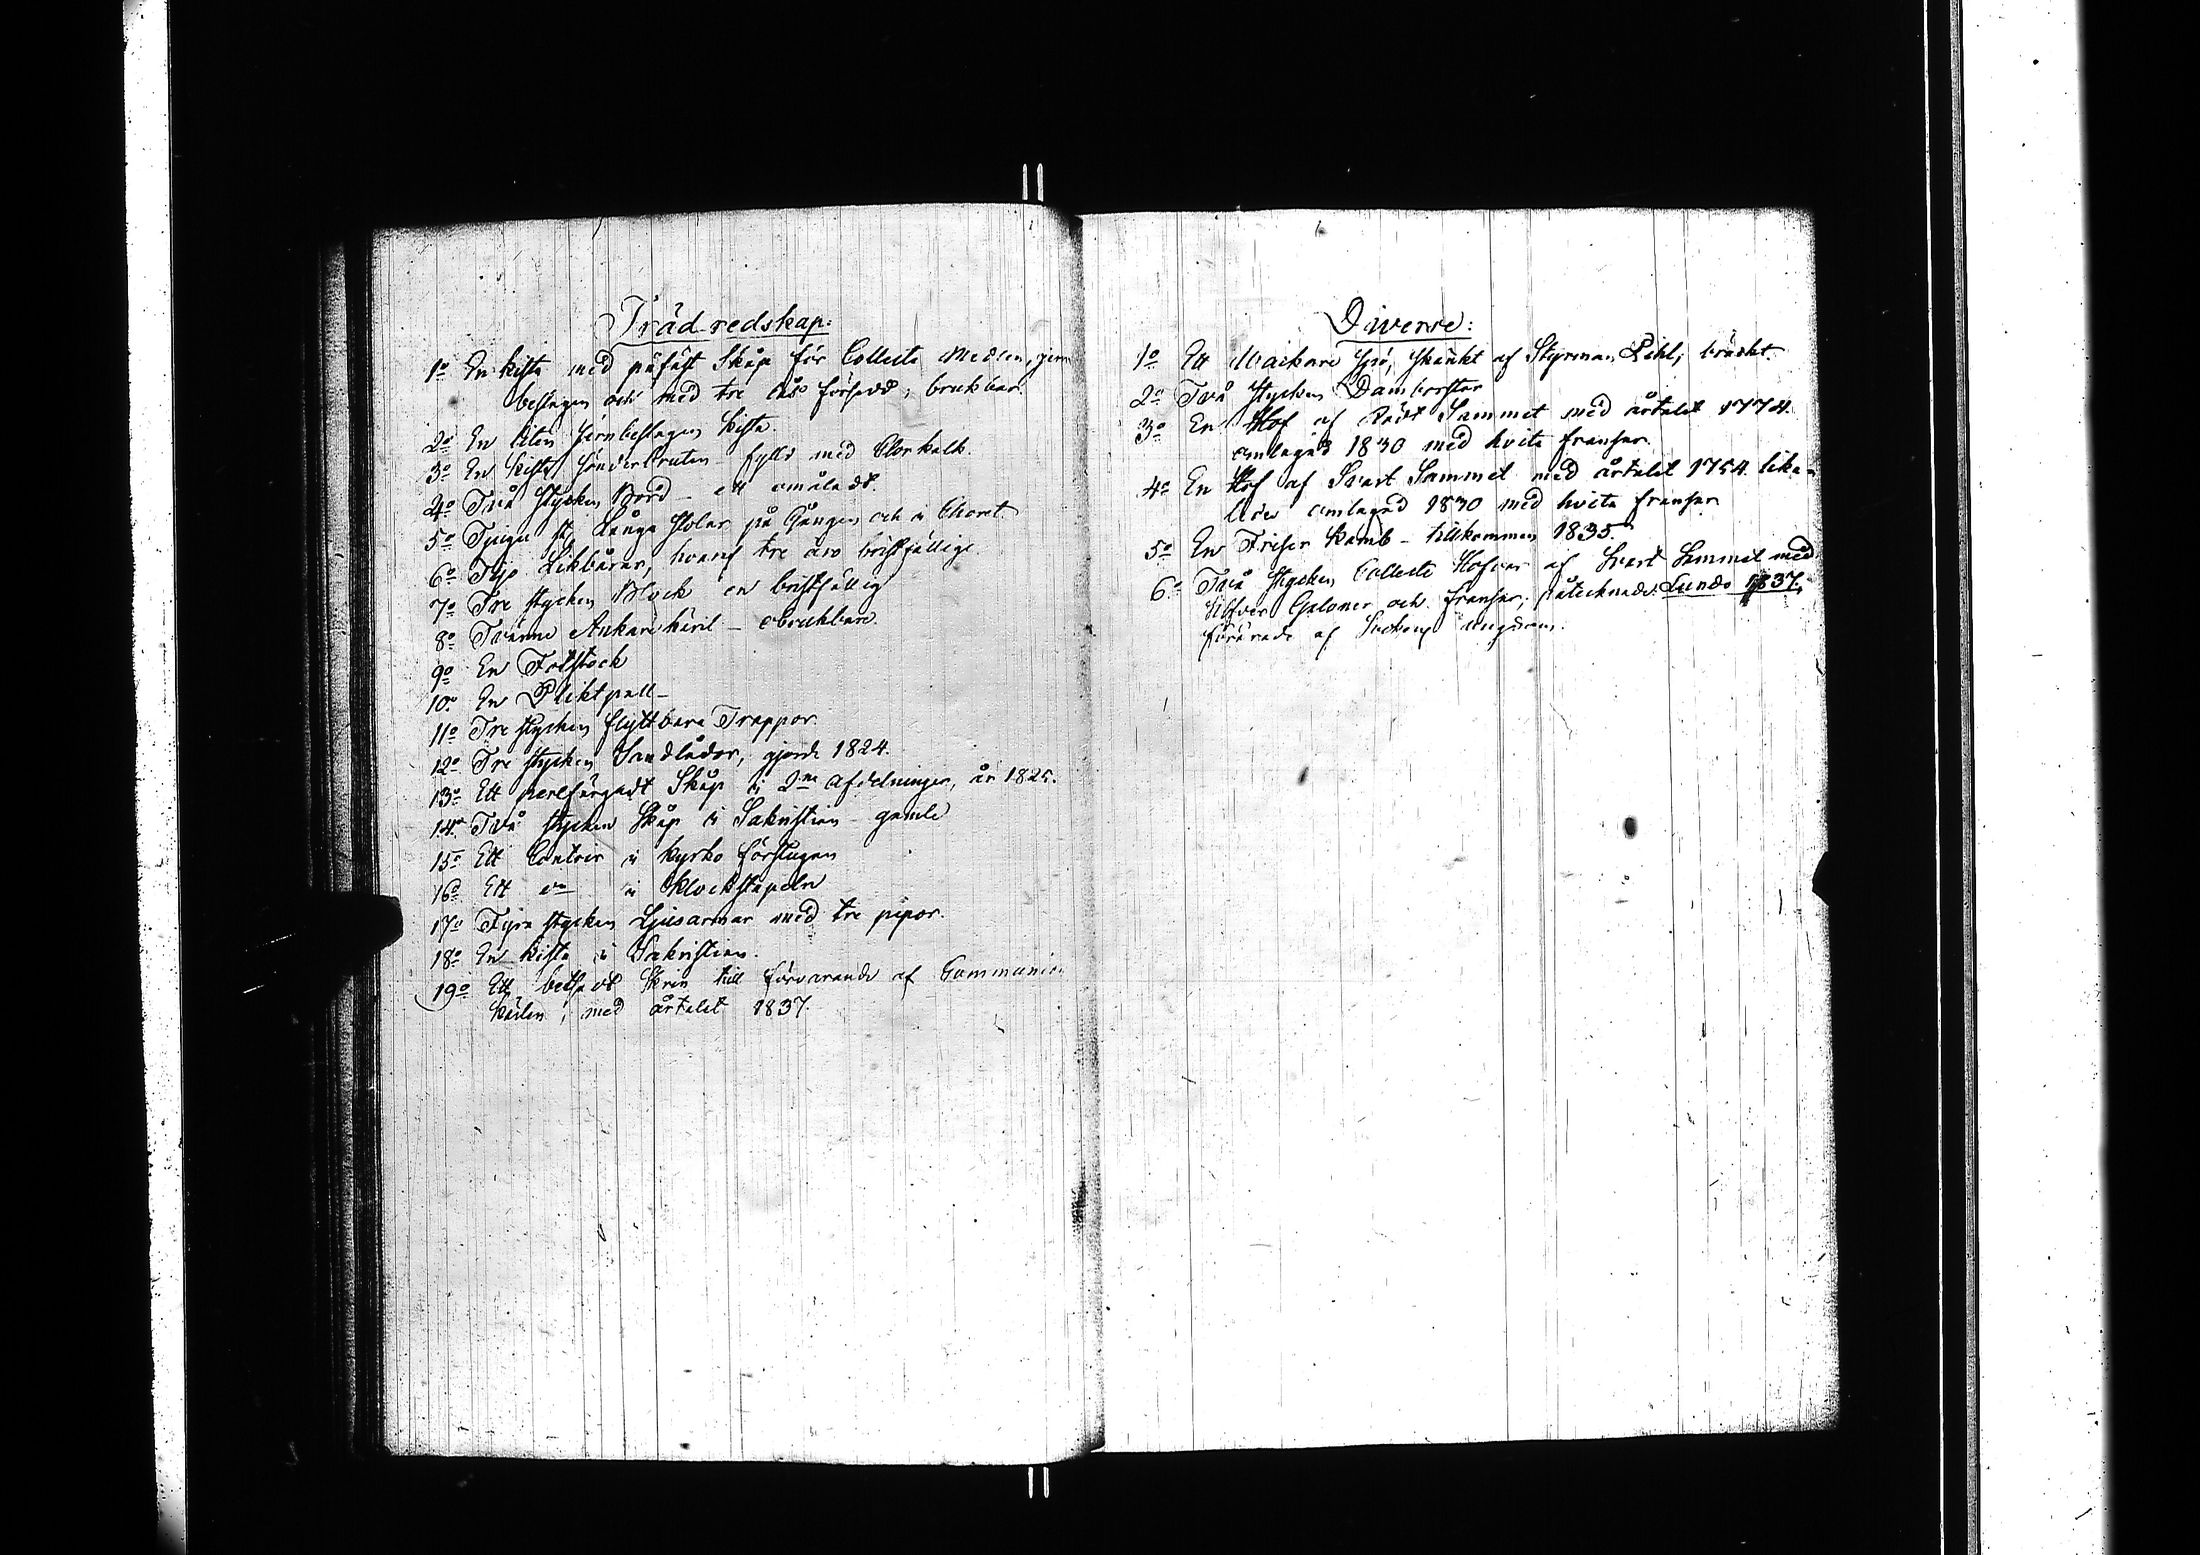 Träd-redskap:
1o En kista med påfäst Skåp för Collecte Medlen, jern
beslagen och med tre lås försedd; brukbar.
2o En liten jernbeslagen kista.
3o En kista sönderbruten - fylld med Clorkalk.
4o Två stycken Bord - ett omåladt.
5o Tjugu st. Långa stolar på Gången och i Choret
6o Sju Likbårar, hvaraf tre äro bristfällige.
7o Tre stycken Block en bristfällig
8o Tvänne Ankarekäril - obrukbare
9o En Fotstock
10o En Pliktpall -
11o Tre stycken flyttbara Trappor.
12o Tre stycken Sandlådor, gjorde 1824.
13o Ett perlfärgadt Skåp i 2ne afdelningar, år 1825.
14o Två stycken Skåp i Sakristian - gamle
15o Ett Contoir i Kyrko förstugan
16o Ett do i Klockstapeln
17o Fyra stycken Ljusarmar med tre pipor.
18o En kista i Sakristian.
19o Ett betsadt Skrin till förvarande af Communion
Kärlen, med årtalet 1837.
Diverse:
1o Ett skänkt af Styrman Pihl; bräckt.
2o Två stycken Damborstar
3o En Hof af Rödt Sammet med årtalet 1774.
omlagad 1830 med hvita fransar.
4o En Hof af Svart Sammet med årtalet 1754 lika-
ledes omlagad 1830 med hvita fransar
5o En Friser Kamb - tillkommen 1835.
6o Två stycken Collecte Hofvar af Svart Sammet med
Silfver Galoner och fransar, påtecknade: Lundo 1837.
förärade af Socknens ungdom.